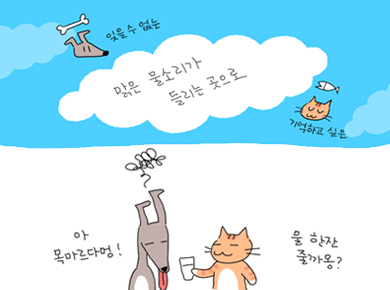 잊을 수 없는
맑은 물소리가
들리는 곳으로
기억하고 싶은
아
목마르다멍!
물 한잔
줄까옹?